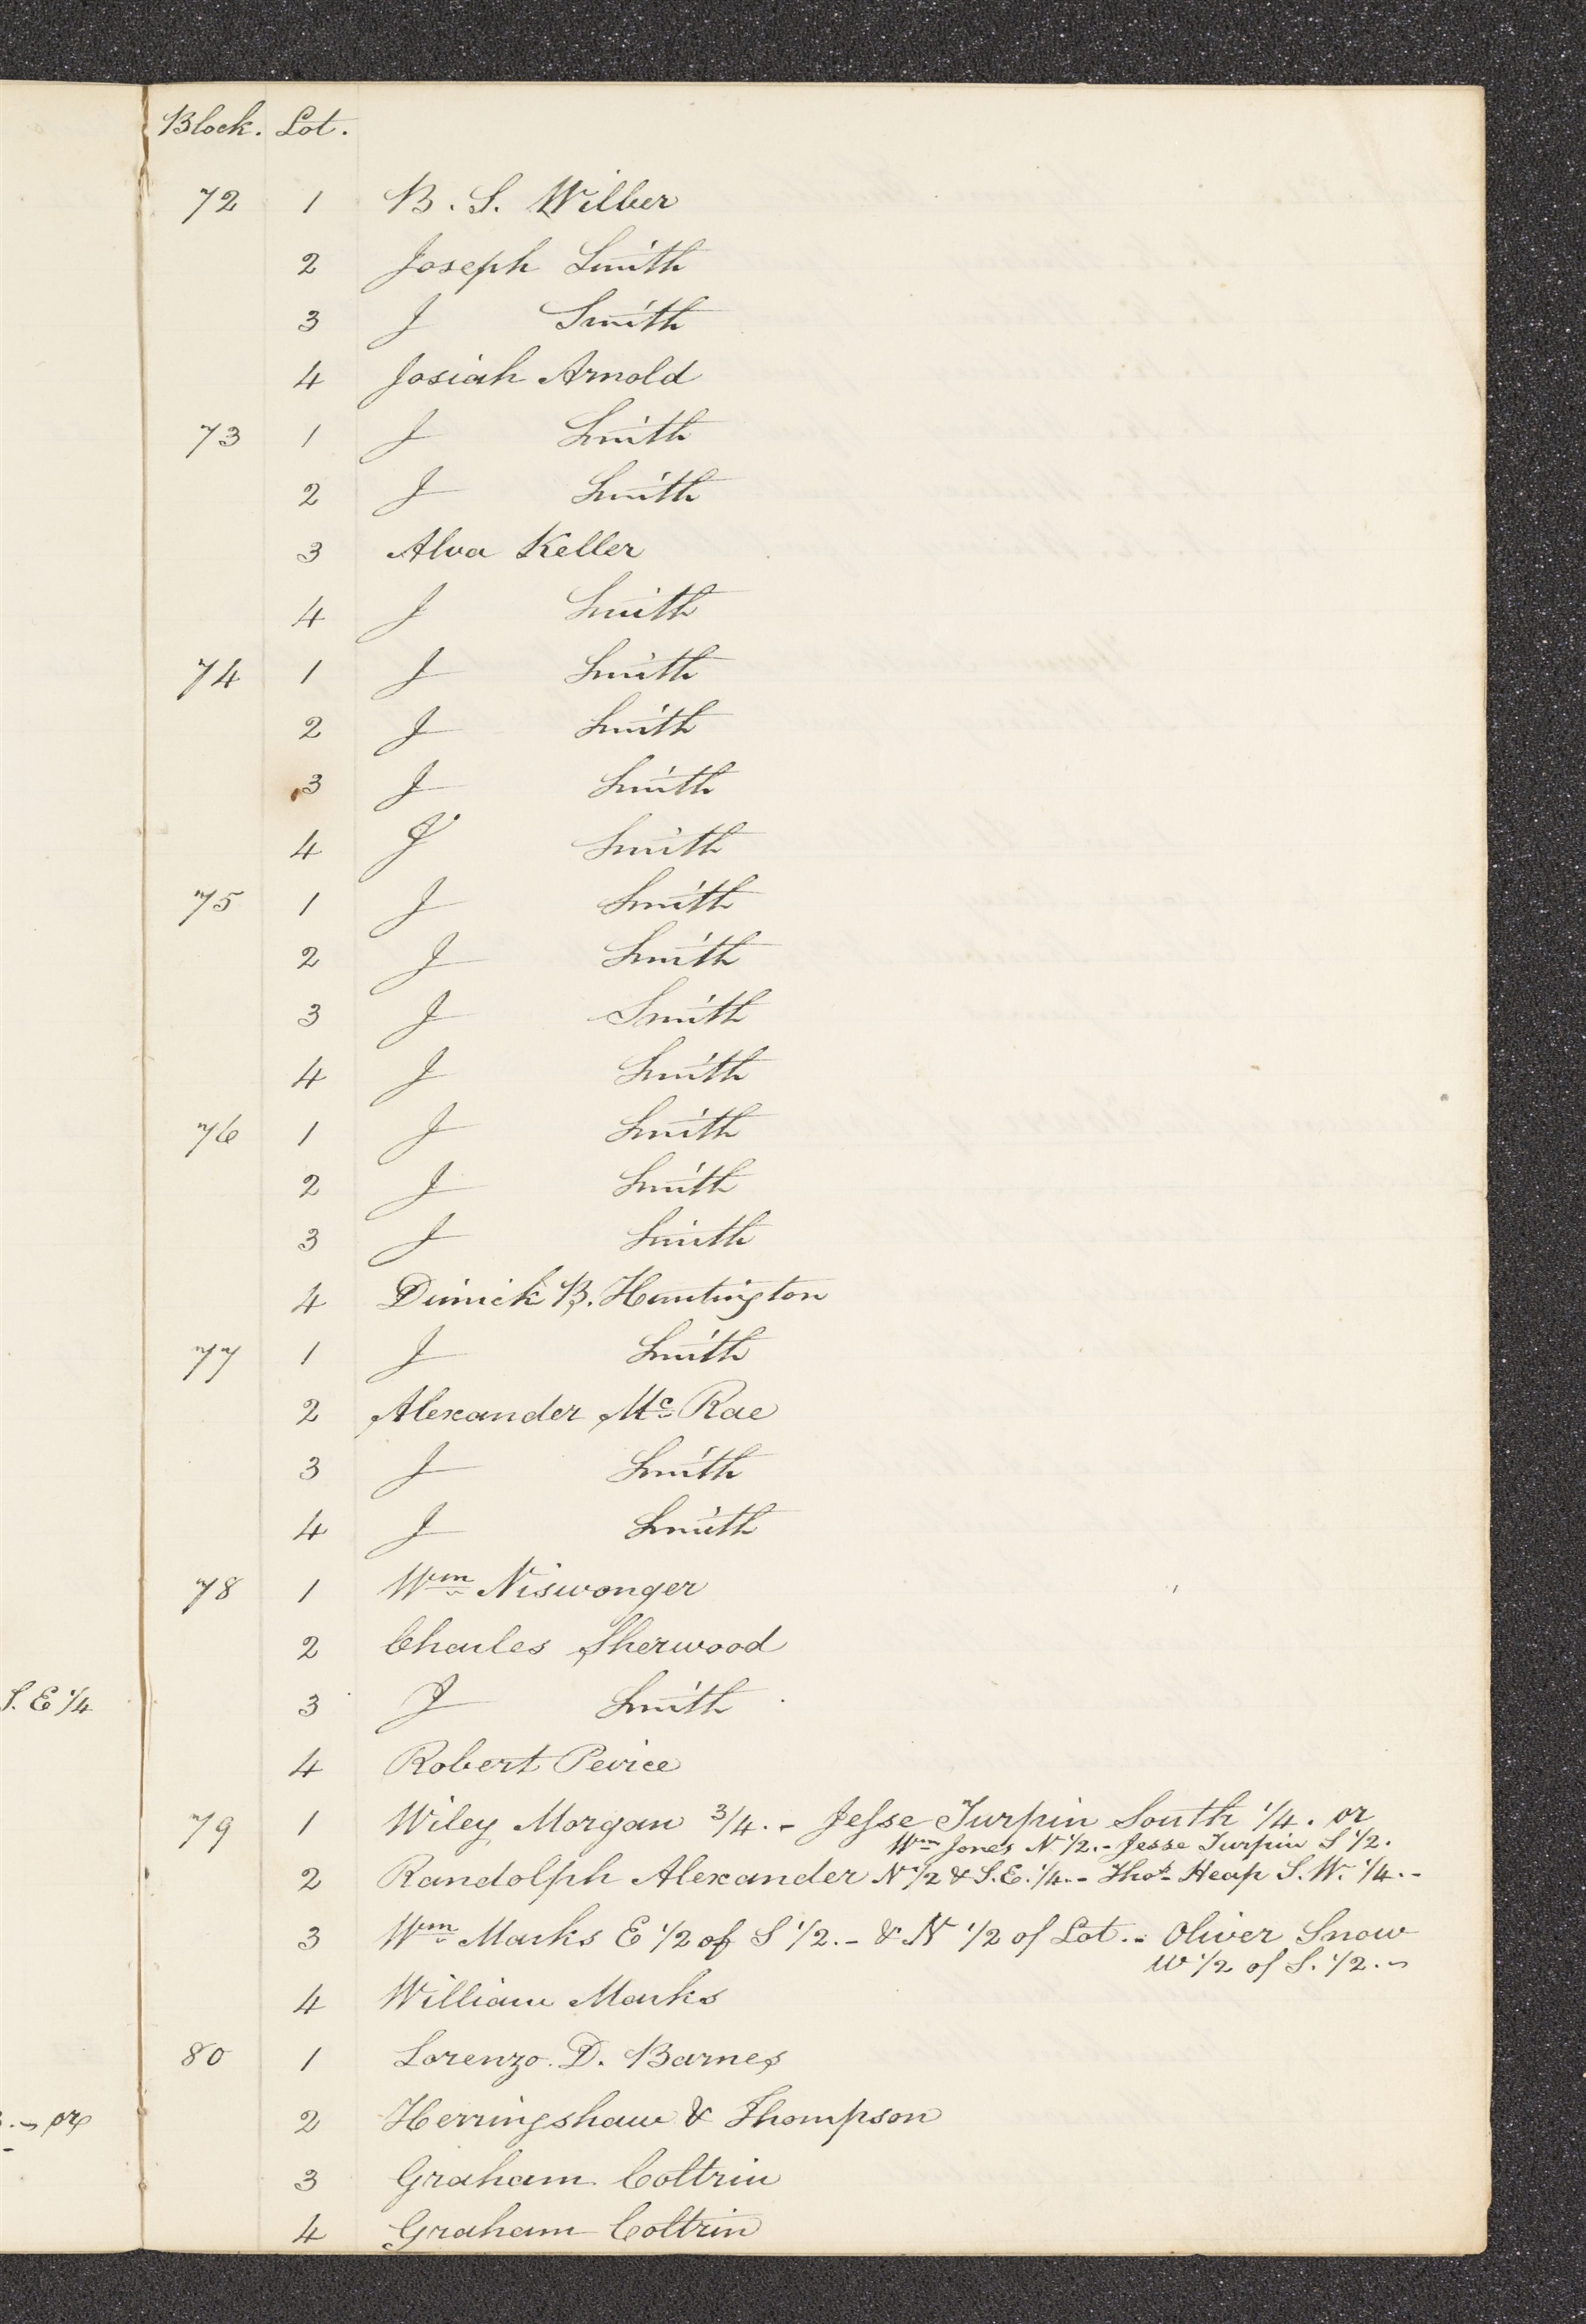 Block. Lot.
72 1 B. S. Wilber
2 Joseph Smith
3 J Smith
4 Josiah Arnold
73 1 J Smith
2 J Smith
3 Alva Keller
4 J Smith
74 1 J Smith
2 J Smith
3 J Smith
4 J Smith
75 1 J Smith
2 J Smith
3 J Smith
4 J Smith
76 1 J Smith
2 J Smith
3 J Smith
4 Dimick B. Huntington
77 1 J Smith
2 Alexander Mc Rae
3 J Smith
4 J Smith
78 1 Wm Niswonger
2 Charles Sherwood
S. E 1/4
3 J Smith
4 Robert Peirce
79 1 Wiley Morgan 3/4. - Jesse Turpin South 1/4. or
Wm Jones N 1/2. - Jesse Turpin S 1/2.
2 Randolph Alexander N 1/2 & S.E. 1/4. - Thos Heap S. W. 1/4. -
3 Wm Marks E 1/2 of S 1/2. - & N 1/2 of Lot. - Oliver Snow
W 1/2 of S. 1/2. -
4 William Marks
80 1 Lorenzo. D. Barnes
or
2 Herringshaw & Thompson
3 Graham Coltrin
4 Graham Coltrin